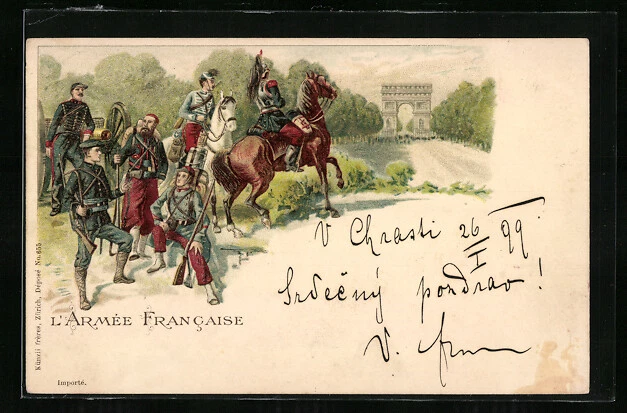 L'ARMÉE FRANÇAISE
Künzli frères, Zürich, Déposé No. 655
Importé.
V Chrasti 26/II 99.
Srdečný pozdrav!
V.